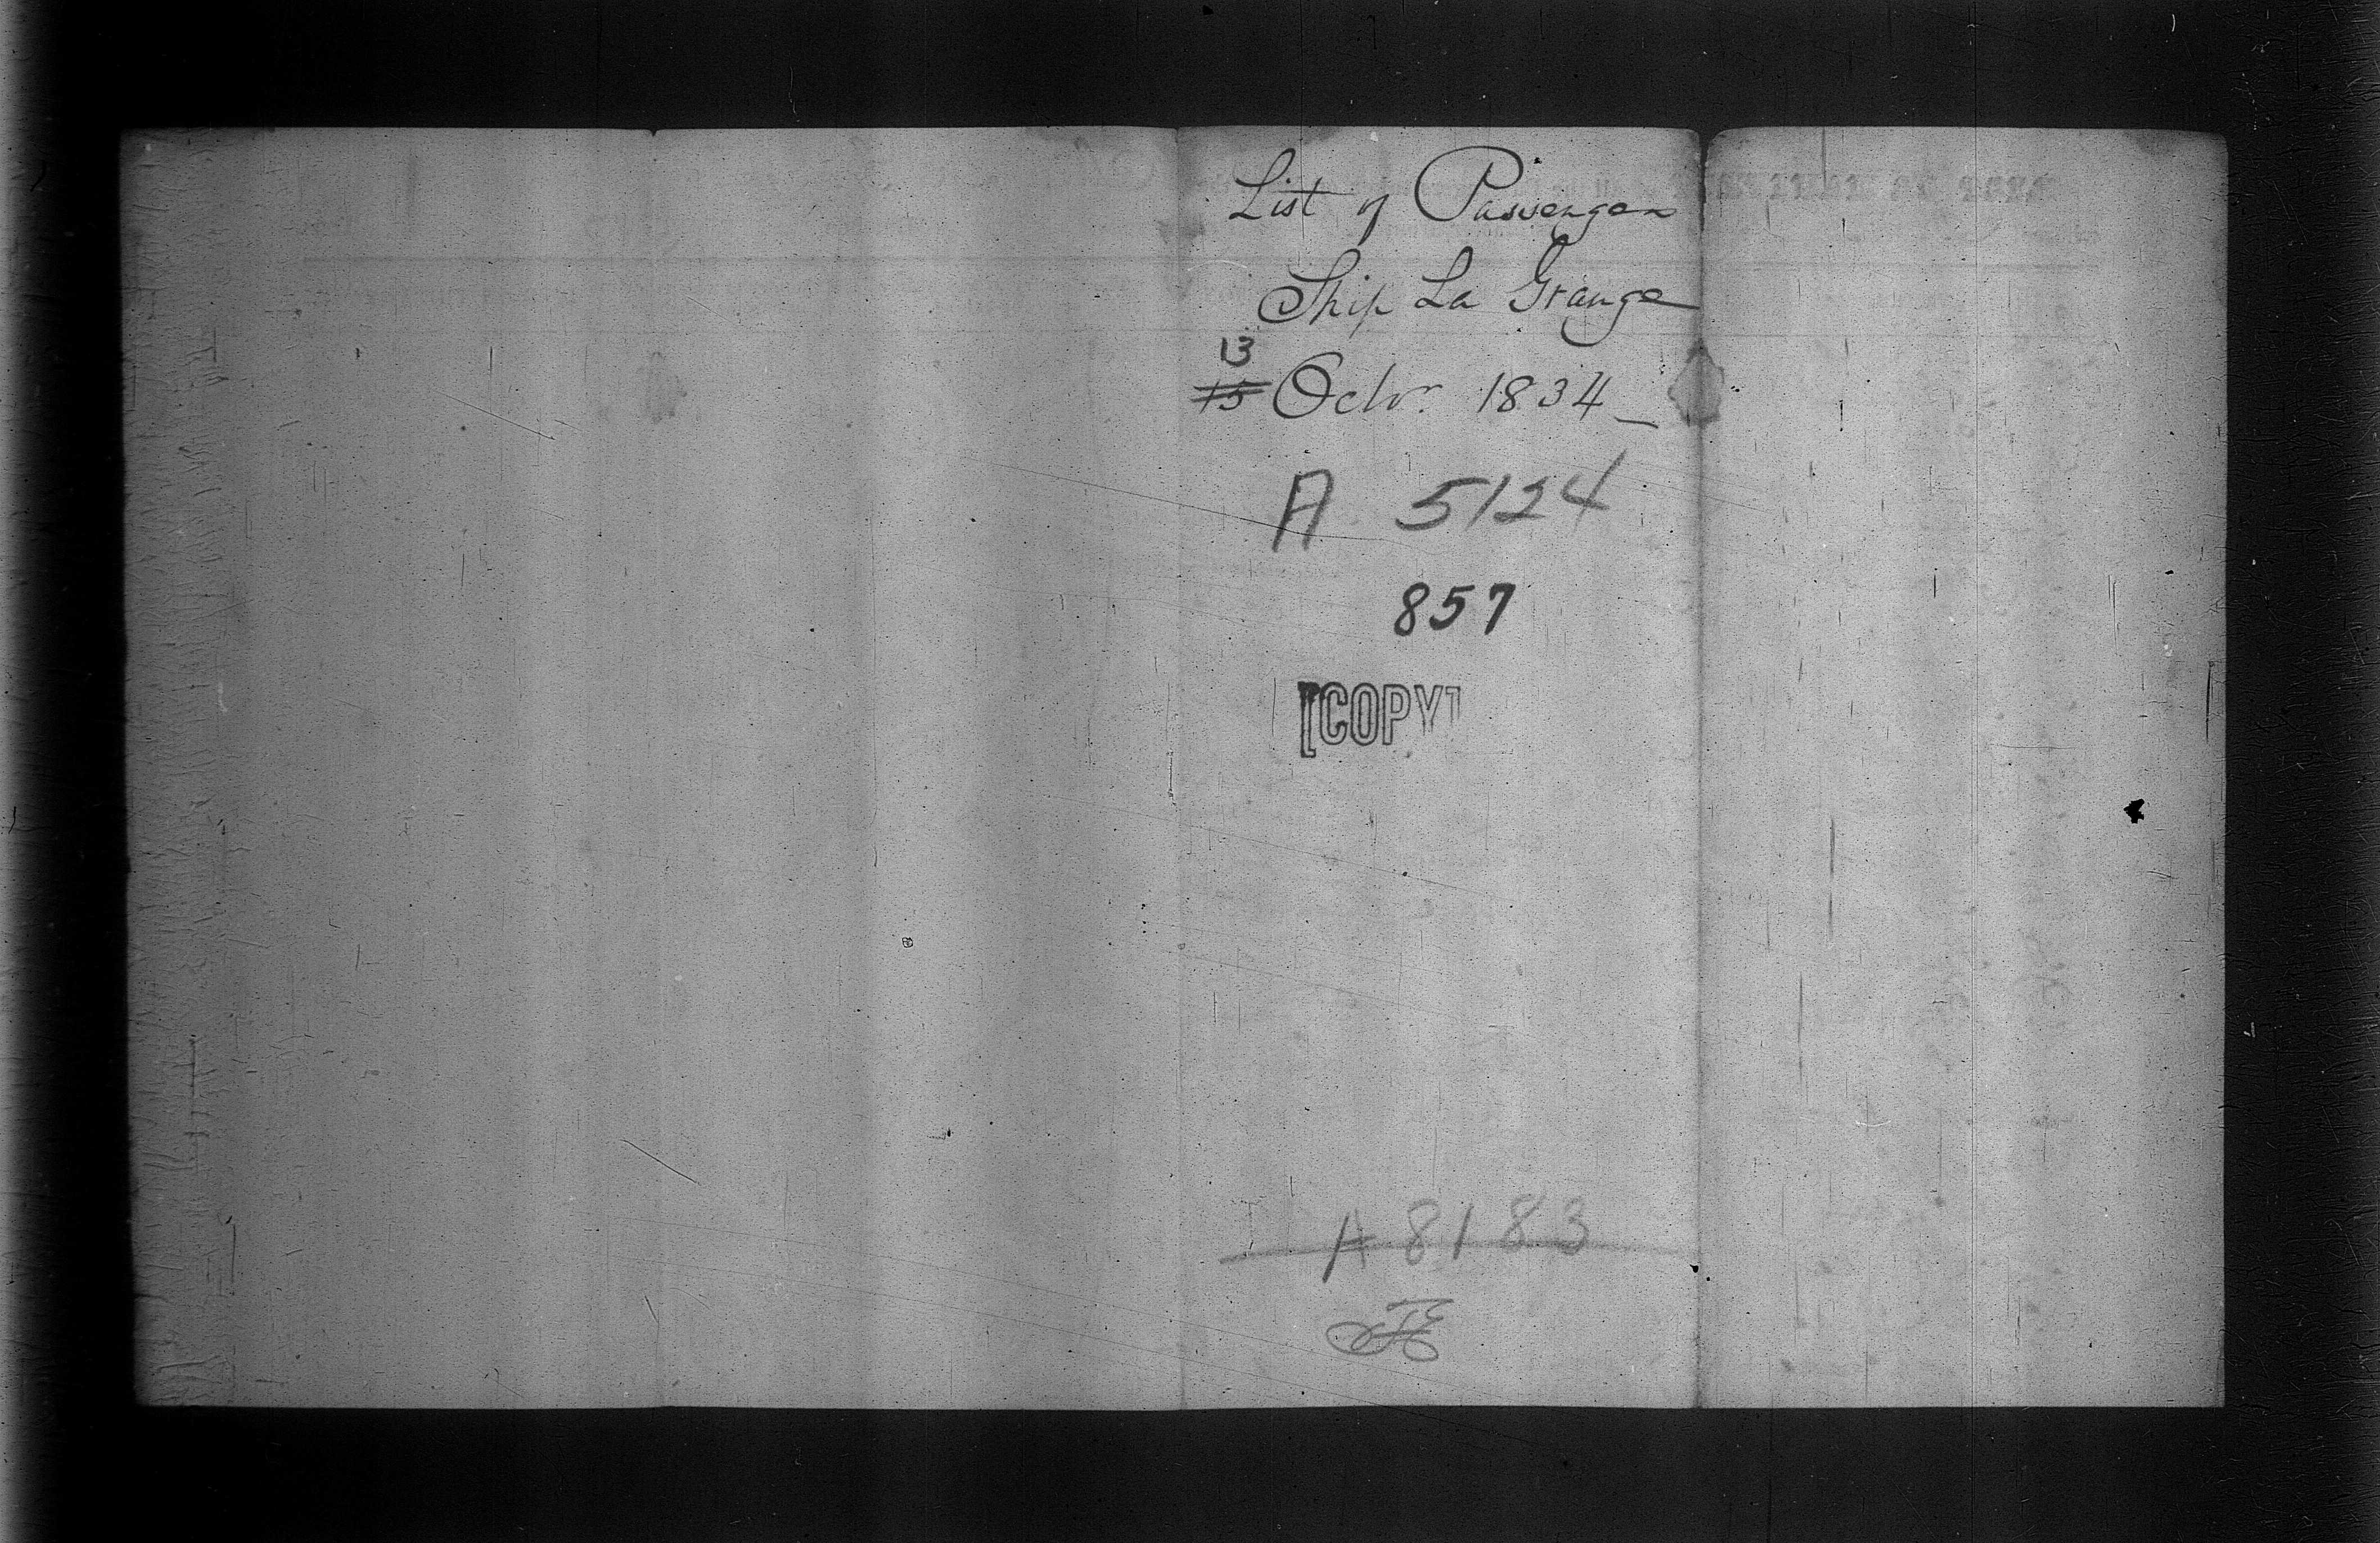 List of Passengers
Ship La Grange
13
15 Octr. 1834
A 5124
857
[COPY]
A 8183